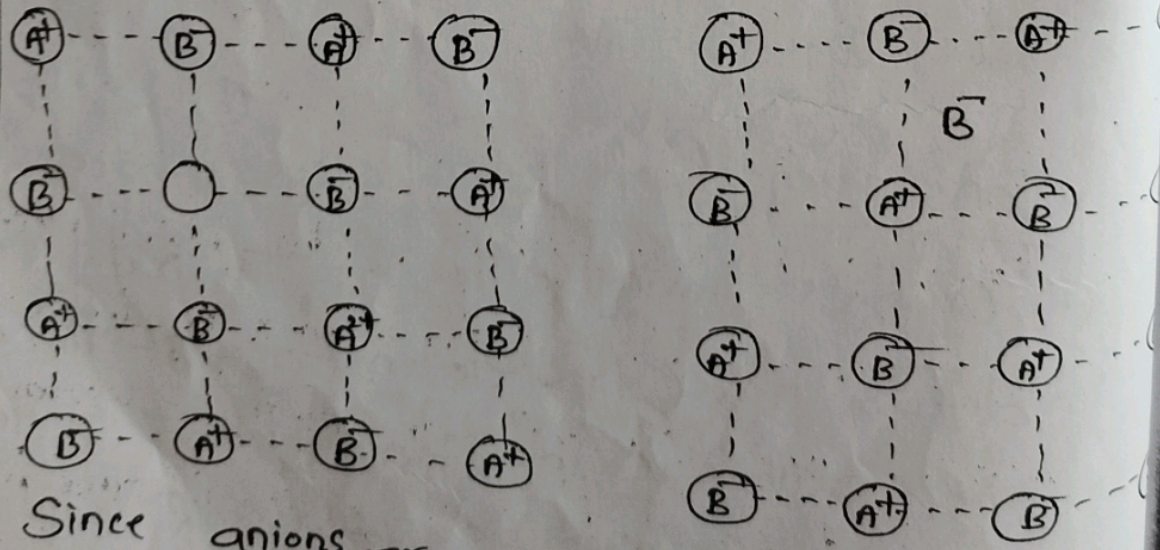 A⁺ B⁻ A⁺ B⁻ A⁺ B⁻ A⁺
B⁻
B⁻ B⁻ A⁺ B⁻ A⁺ B⁻
A⁺ B⁻ A²⁺ B⁻ A⁺ B⁻ A⁺
B⁻ A⁺ B⁻ A⁺ B⁻ A⁺ B⁻
Since anions